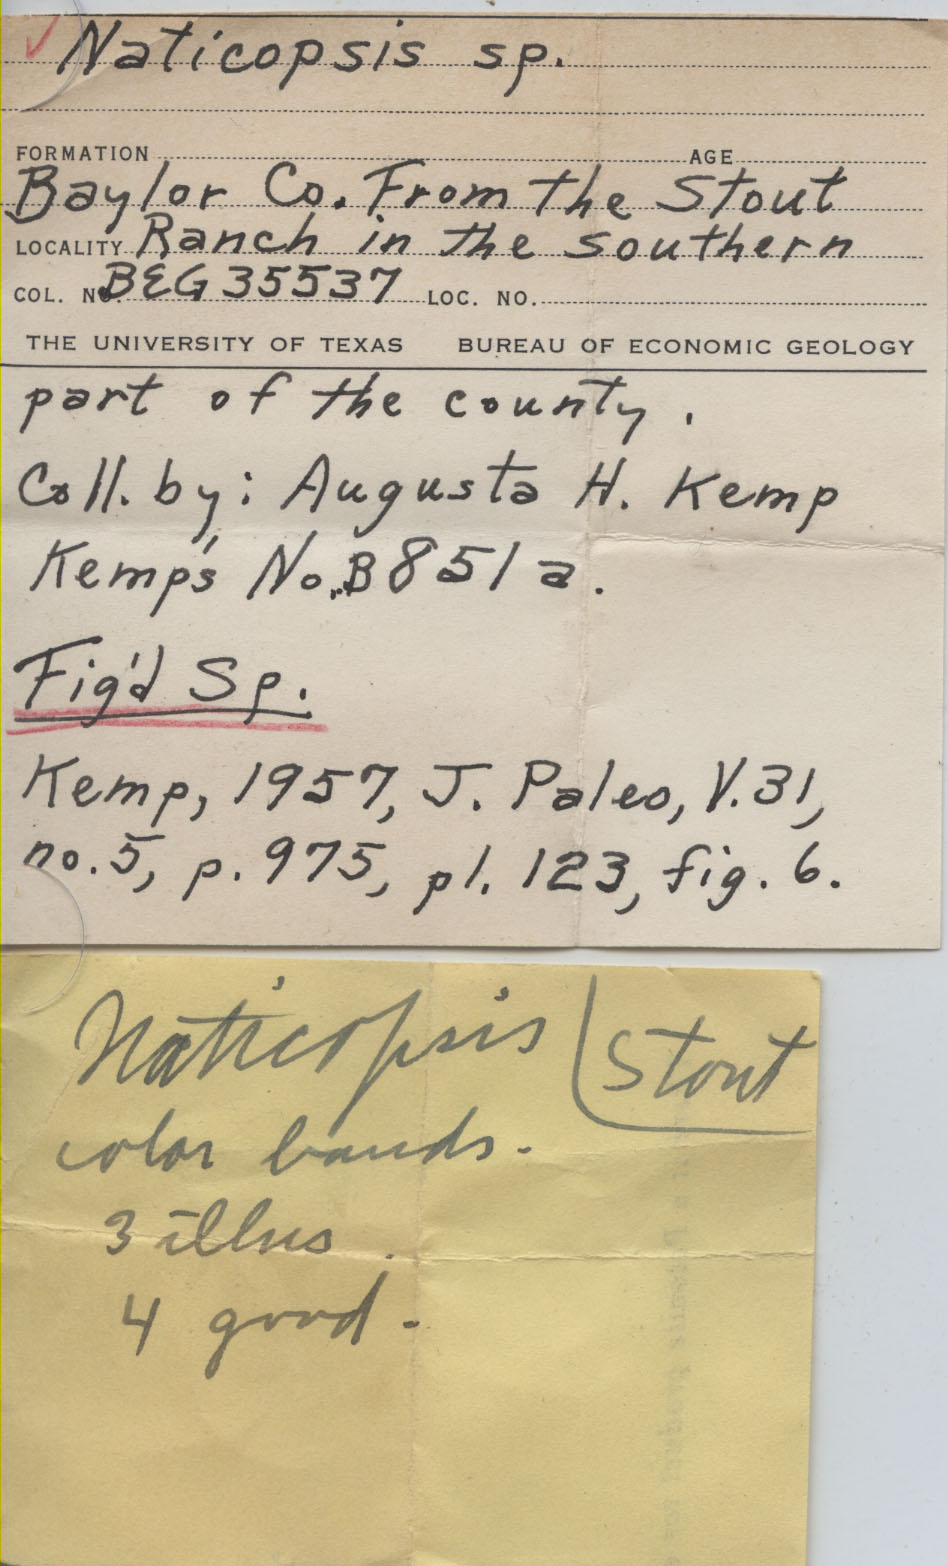 ✓ Naticopsis sp.
FORMATION AGE
Baylor Co. From the Stout
LOCALITY Ranch in the southern
COL. NO. BEG 35537 LOC. NO.
THE UNIVERSITY OF TEXAS BUREAU OF ECONOMIC GEOLOGY
part of the county.
Coll. by: Augusta H. Kemp
Kemp's No. B851a.
Fig'd Sp.
Kemp, 1957, J. Paleo, V.31,
no.5, p.975, pl. 123, fig. 6.
Naticopsis Stout
color bands.
3 illus.
4 good.